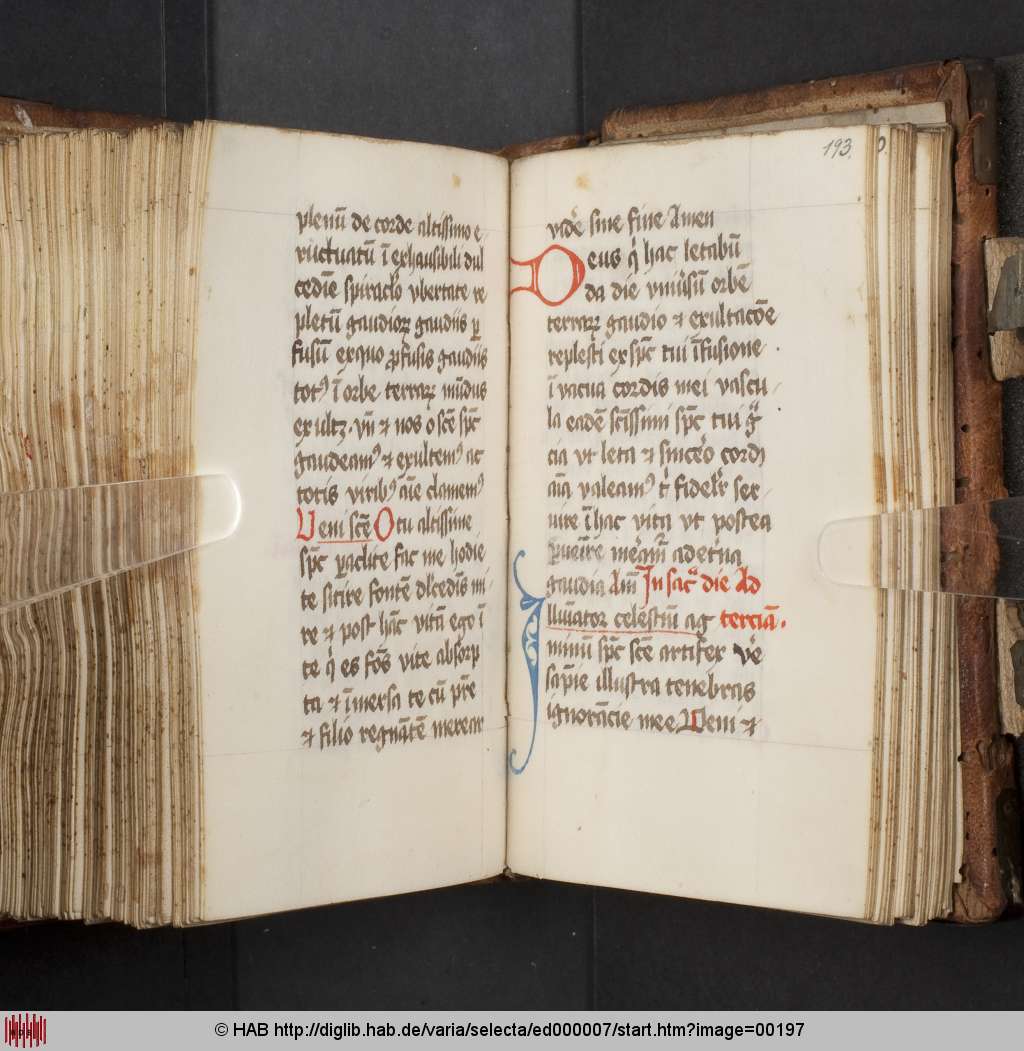 plenū de corde altissimo e
ructuatū ī exhausibili dul
cedīe spiraclo vbertate re
pletū gaudioꝝ gaudiis ꝑ
fusū exquo ꝓfusis gaudiis
totꝰ ī orbe terraꝝ mūdus
exultꝫ. vn̄ et nos o scē spc̄
gaudeamꝰ et exultemꝰ ac
totis viribꝰ aīe clamemꝰ
Veni scē O tu altissime
spc̄ ꝑaclite fac me hodie
te sitire fontē dlcedīs mi
re et post hāc vitā ego ī
te q̄ es fōs vite absorp
ta et īmersa te cū pr̄e
et filio regnātē merear
193.
vidē sine fine Amen
Deus q̄ hac letabū
da die vniūsū orbē
terraꝝ gaudio et exultacōe
replesti ex spc̄ tui īfusione
ī vacua cordis mei vascu
la eadē sc̄issimi spc̄ tui gͣ
cia vt leta et sincero cordꝭ
valeamꝰ t̄ fideľr ser
uire ī hac vita vt postea
ꝑuenīre ad et̄na
gaudia Am̄ In sacͣ die Ad
Illuīator celestiū ag terciā.
minū spc̄ scē artifex ve
sapīe illustra tenebras
ignorācie mee Veni et
© HAB http://diglib.hab.de/varia/selecta/ed000007/start.htm?image=00197